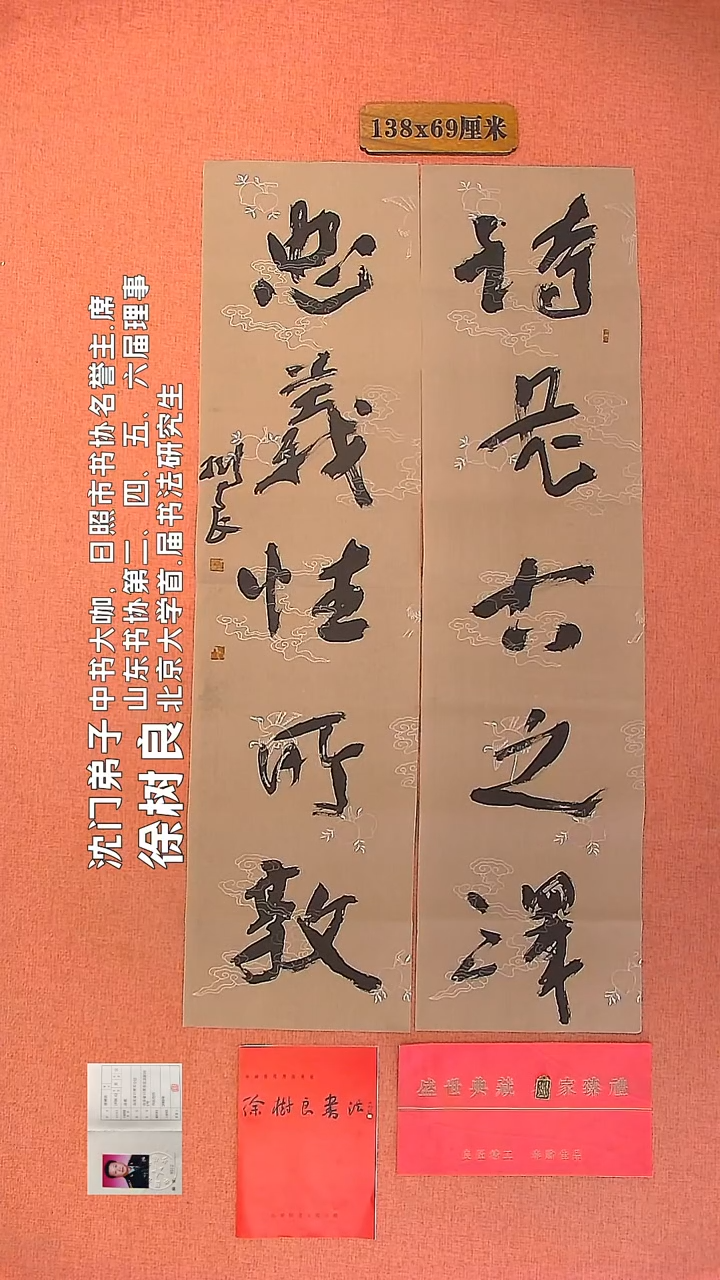 138x69厘米
詩是古之澤
忠義性所敦
樹良
沈门弟子
徐树良
中书大咖，日照市书协名誉主.席
山东书协第二、四、五、六届理事
北京大学首.届书法研究生
徐樹良書法
盛世典藏 國家臻禮